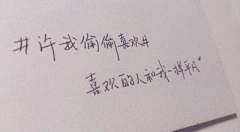 #许我偷偷喜欢#
喜欢的人和我一样平凡"